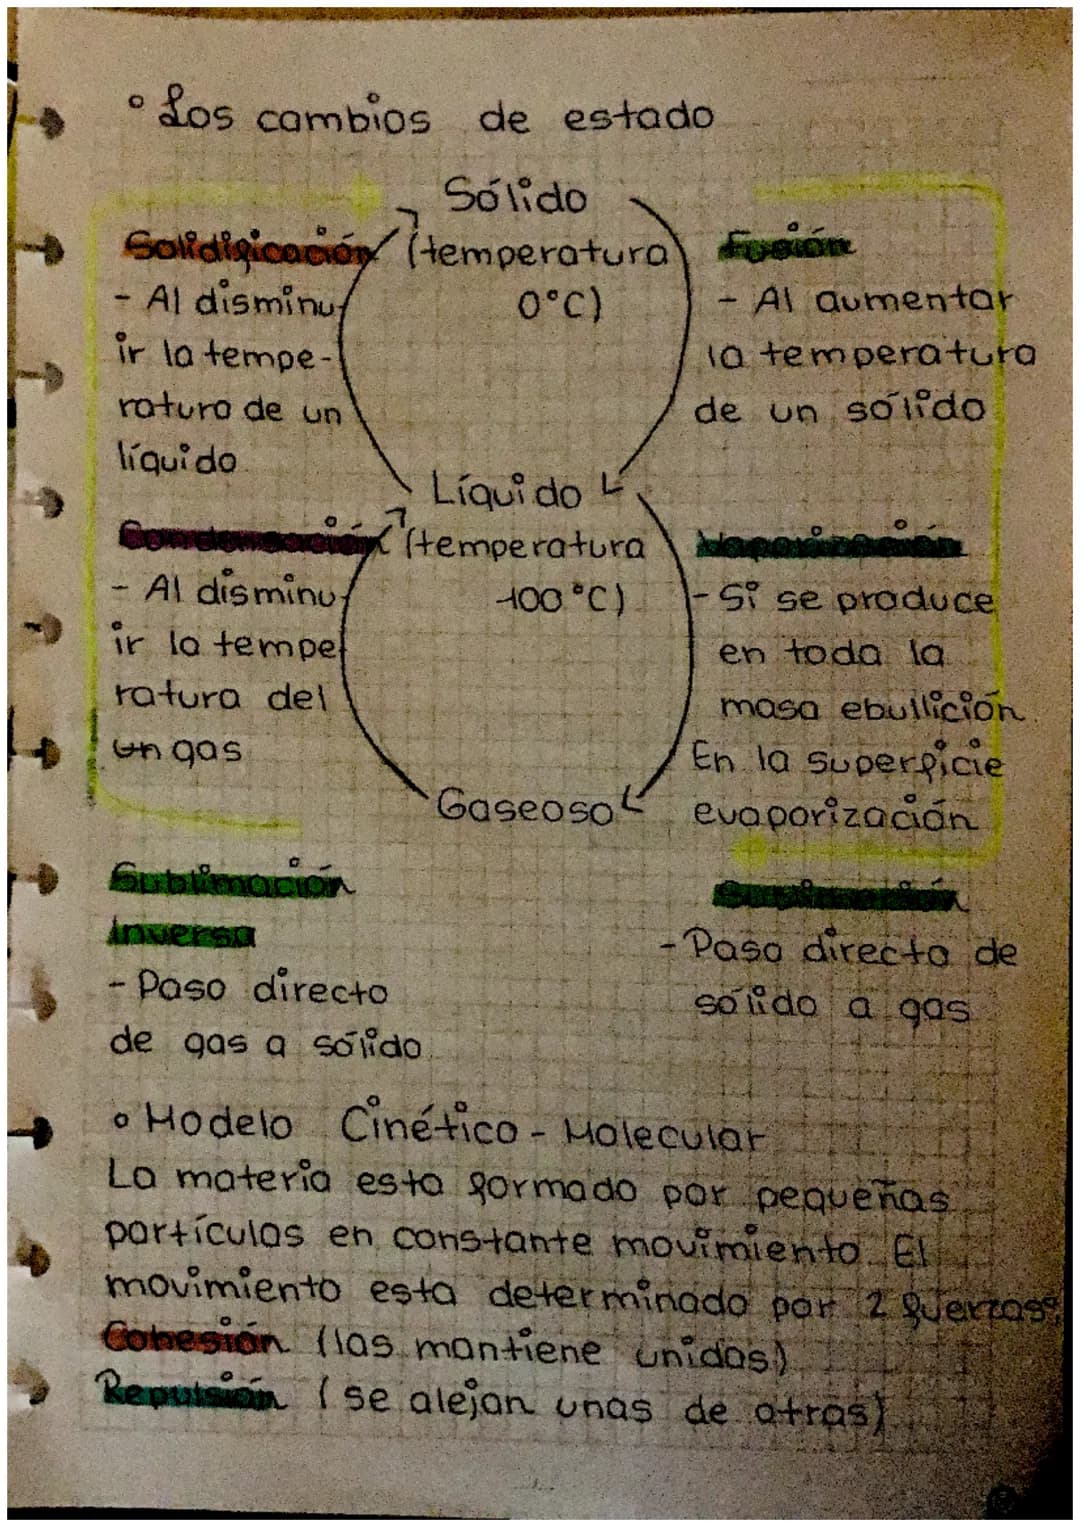 ° Los cambios de estado
Sólido
(temperatura
0°C)
Solidificación
- Al disminu-
ir la tempe-
ratura de un
líquido
Fusión
- Al aumentar
la temperatura
de un sólido
Líquido
(temperatura
100°C)
Condensación
- Al disminu-
ir la tempe
ratura del
un gas
Vaporización
- Si se produce
en toda la
masa ebullición.
En la superficie
evaporización
Gaseoso
Sublimación
Inversa
- Paso directo
de gas a sólido
Sublimación
- Paso directo de
sólido a gas
° Modelo Cinético - Molecular
La materia esta formado por pequeñas
partículas en constante movimiento. El
movimiento esta determinado por 2 fuerzas:
Cohesión (las mantiene unidas)
Repulsión (se alejan unas de otras)